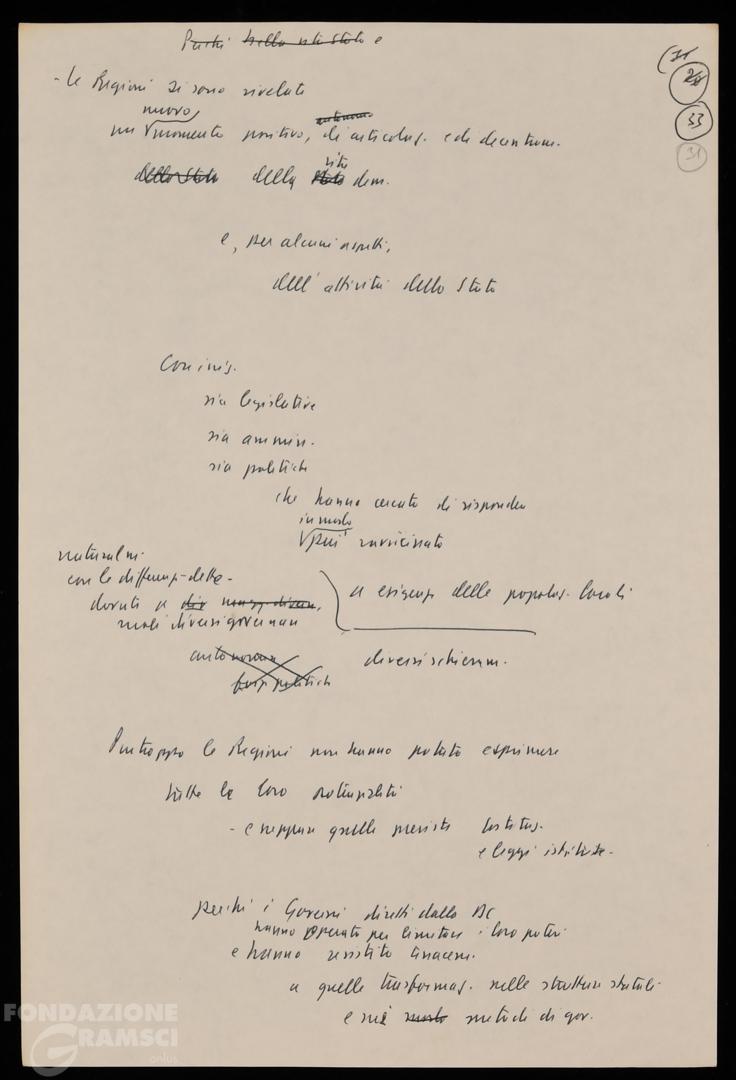 Perché nello stesso Stato e
- Le Regioni si sono rivelate
nuovo
autonomo
un momento positivo, di articolaz. e di decentram.
dello Stato della Stato dem.
vita
e, per alcuni aspetti,
dell'attività dello Stato
Con iniz.
sia legislative
sia ammin.
sia politiche
che hanno cercato di rispondere
in modo
più ravvicinato
naturalm.
con le differenze dette
dovuti a
a esigenze delle popolaz. locali
diversi schieram.
politich
Purtroppo le Regioni non hanno potuto esprimere
tutte le loro potenzialità
- e neppure quelle previste
e leggi istitutive
perché i Governi diretti dalla DC
hanno operato per limitare i loro poteri
e hanno resistito tenacem.
a quelle trasformaz. nelle strutture statali
e nei metodi di gov.
33
31
FONDAZIONE
GRAMSCI
onlus